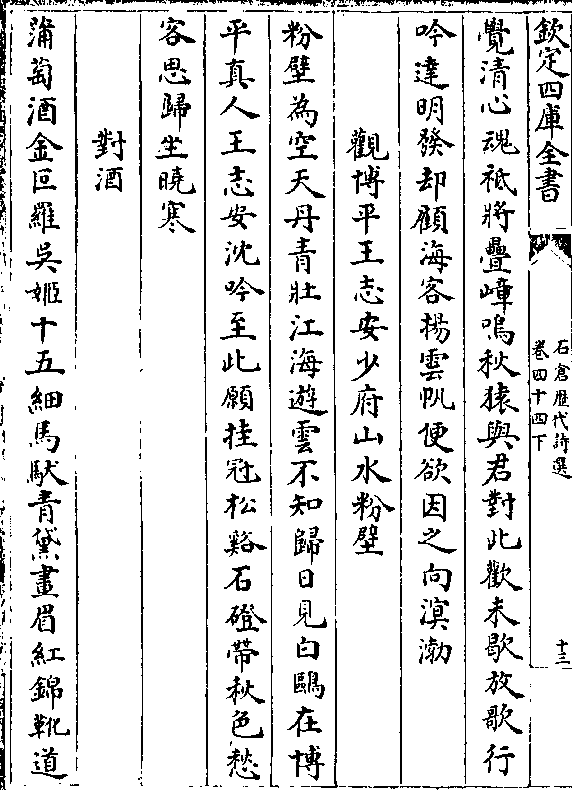 欽定四庫全書
石倉歷代詩選
卷四十四下
十三
覺清心魂祗將疊嶂鳴秋猿與君對此歡未歇放歌行
吟達明發却顧海客揚雲帆便欲因之向溟渤
觀博平王志安少府山水粉壁
粉壁為空天丹青壯江海遊雲不知歸日見白鷗在博
平真人王志安沈吟至此願挂冠松谿石磴帶秋色愁
客思歸坐曉寒
對酒
蒲萄酒金叵羅吳姬十五細馬馱青黛畫眉紅錦靴道